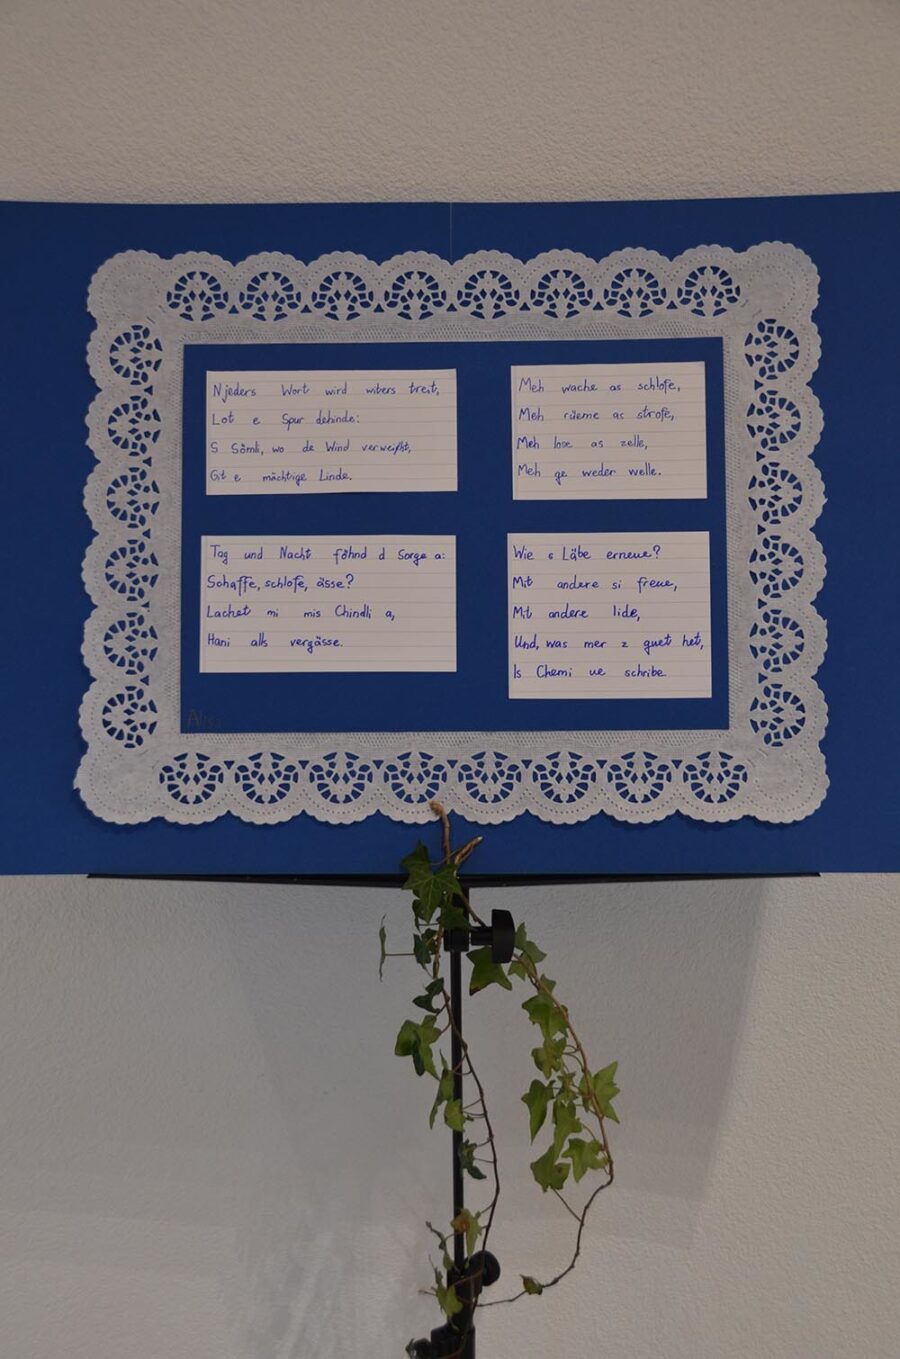 Njeders Wort wird witers treit,
Lot e Spur dehinde:
S Sömli, wo de Wind verweiht,
Git e mächtige Linde.
Meh wache as schlofe,
Meh rüeme as strofe,
Meh lose as zelle,
Meh ge weder welle.
Tag und Nacht föhnd d Sorge a:
Schaffe, schlofe, ässe?
Lachet mi mis Chindli a,
Hani alls vergässe.
Wie s Läbe erneue?
Mit andere si freue,
Mit andere lide,
Und, was mer z guet het,
Is Chemi ue schribe.